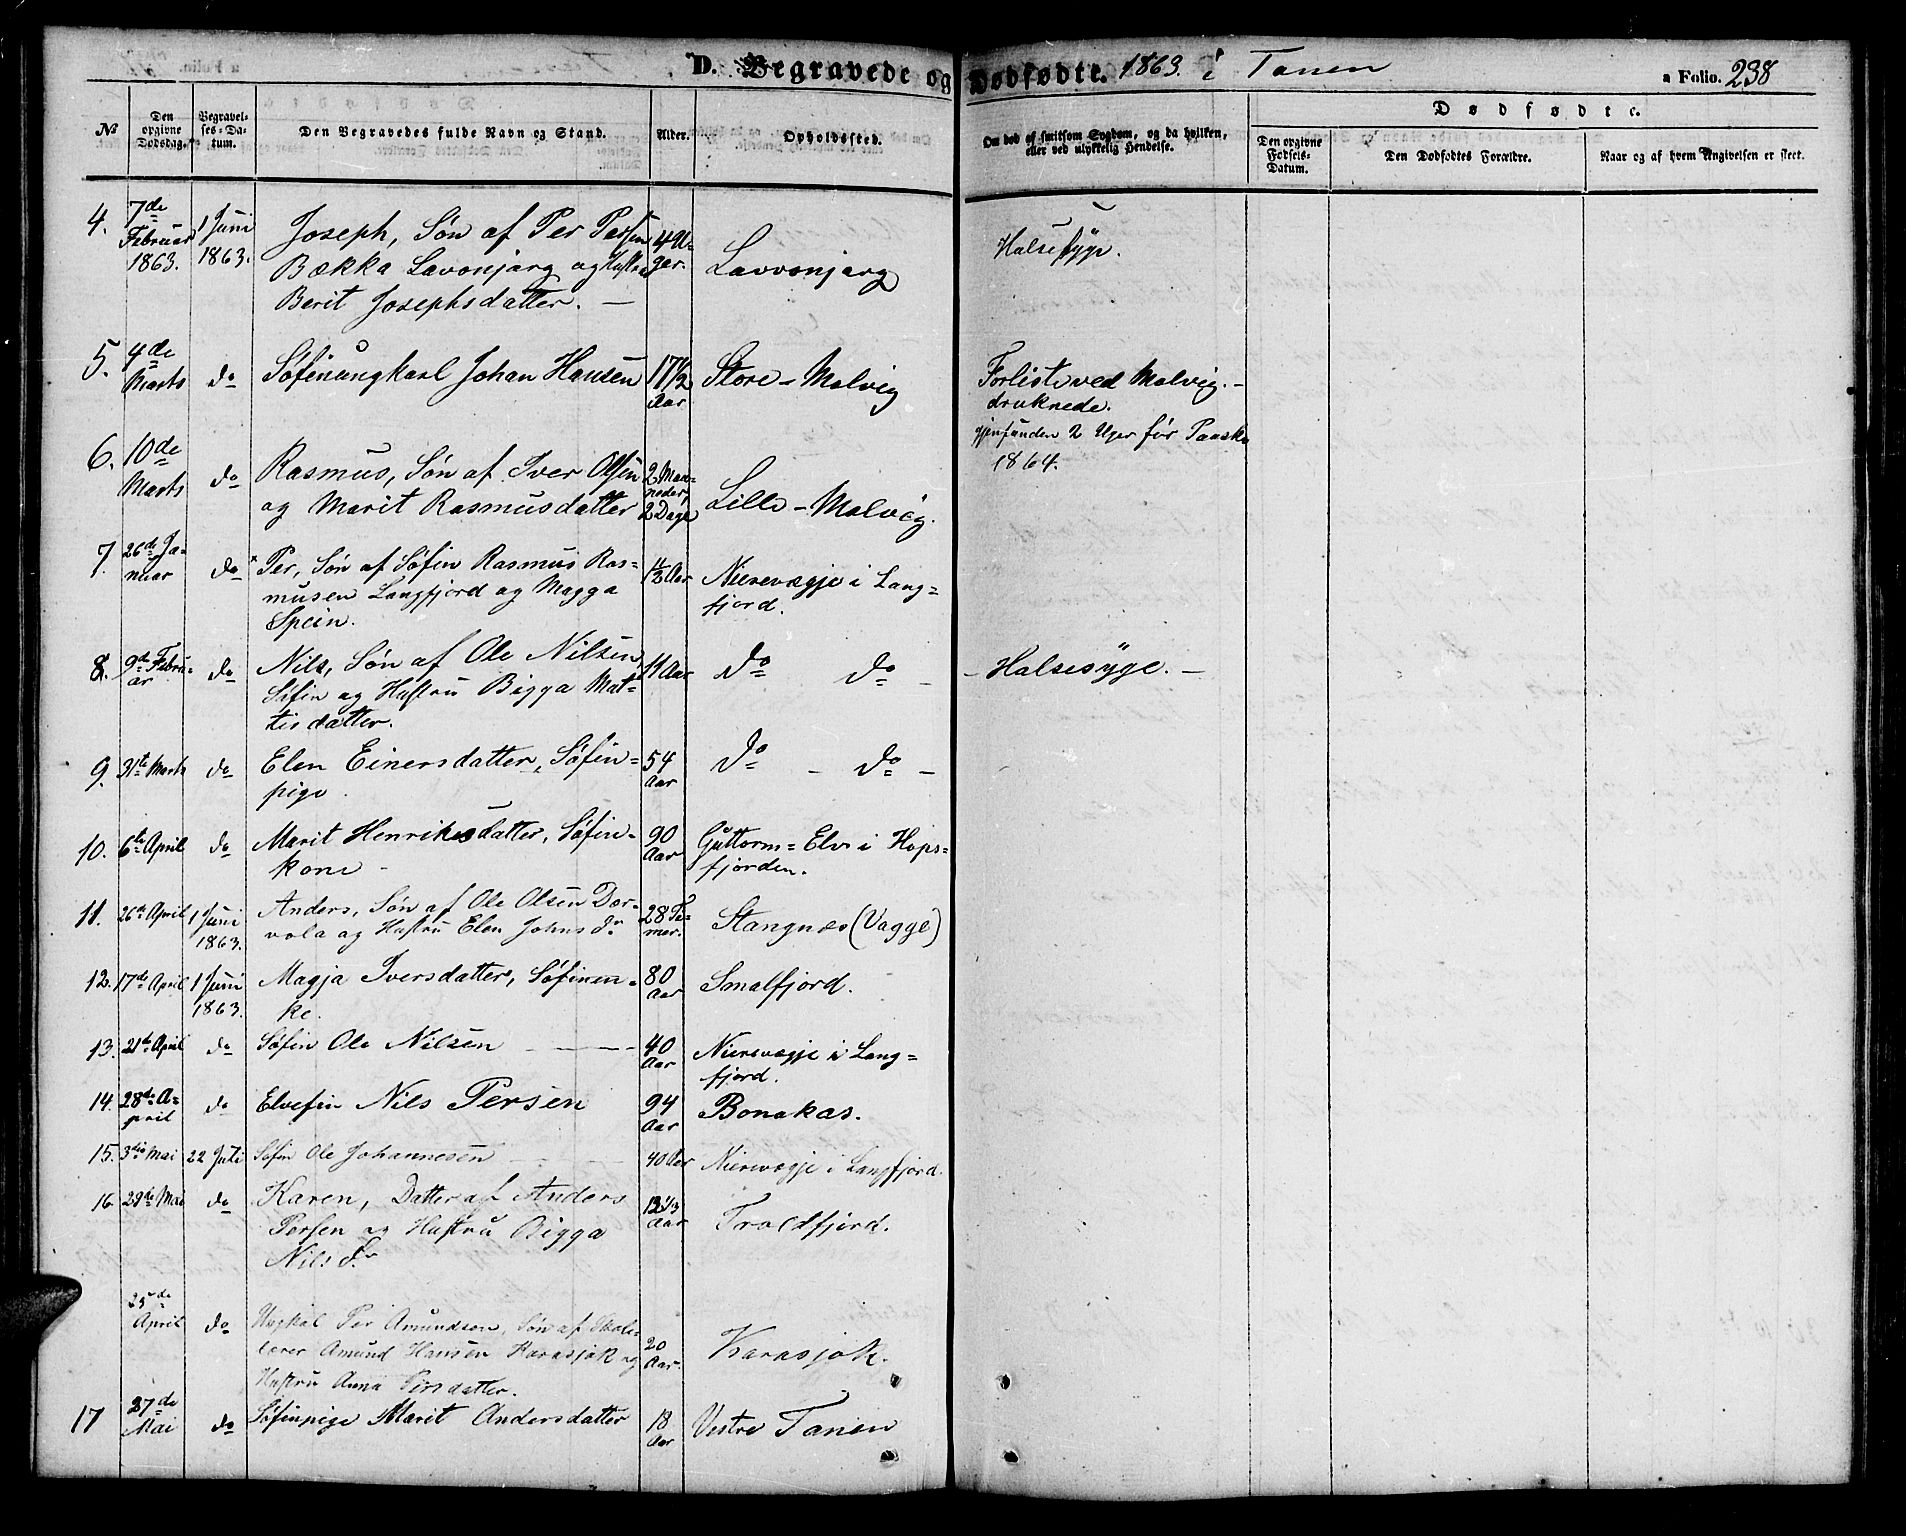 D. Begravede og Dødfødte. 1863. i Tanen
a Folio. 238
Dødfødte.
№
Den opgivne Dødsdag.
Begravelses-Datum.
Den Begravedes fulde Navn og Stand.
Alder.
Opholdssted.
Om død af smitsom Sygdom, og da hvilken, eller ved ulykkelig Hendelse.
Den opgivne Fødsels-Datum.
Den Dødfødtes Forældre.
Naar og af hvem Angivelsen er skeet.
4. 7de Februar 1863. 1 Juni 1863. Joseph, Søn af Per Persen 4 U=
Bækka Lavonjarg og Hustru ger. Lavvonjarg Halsesyge.
Berit Josephsdatter. —
5. 4de Marts do Søfinungkarl Johan Hansen 17 1/2 Aar Store-Molvig Forliste ved Molvig. -
druknede.
gjenfunden 2 Uger før Paaske
1864.
6. 10de Marts do Rasmus, Søn af Iver Olsen 2 Maa=
og Marit Rasmusdatter neder, 2 Dage Lille-Molvig.
7. 26de Ja=
nuar do Per, Søn af Søfin Rasmus Ras= 1 1/2 Aar Nierevægje i Lang=
musen Langfjord og Magga fjord.
Spein.
8. 9de Febru=
ar do Nils, Søn af Ole Nilsen, 11 Aar do do - - Halsesyge. -
Søfin og Hustru Bigga Mat=
tisdatter.
9. 31te Marts do Elen Einersdatter, Søfin= 54 Aar do - do -
pige.
10. 6te April do Marit Henriksdatter, Søfin= 90 Aar Guttorm=Elv i Hops=
kone - fjorden.
11. 26de April 1 Juni 1863. Anders, Søn af Ole Olsen Dær= 28 Ti=
vola og Hustru Elen Johns dr mer. Stangnæs (Vagge)
12. 17de April 1 Juni 1863. Magja Iversdatter, Søfinen= 80 Aar Smalfjord.
ke.
13. 21de April do Søfin Ole Nilsen 40 Aar Nierevægje i Lang=
fjord.
14. 28de A=
pril do Elvefin Nils Persen 94 Aar Bonakas.
15. 3die Mai 22 Juli Søfin Ole Johannesen 40 Aar Nierevægje i Langfjord.
16. 29de Mai do Karen, Datter af Anders 12 1/3 Aar Troldfjord.
Persen og Hustru Bigga
Nils dr
25de April do Ungkal Per Amundsen, Søn af Skole=
lærer Amund Hansen Karasjok og 20 Aar. Karasjok.
Hustru Anna Persdatter.
17 27de Mai do Søfinpige Marit Andersdatter 18 Aar Vestre Tanen